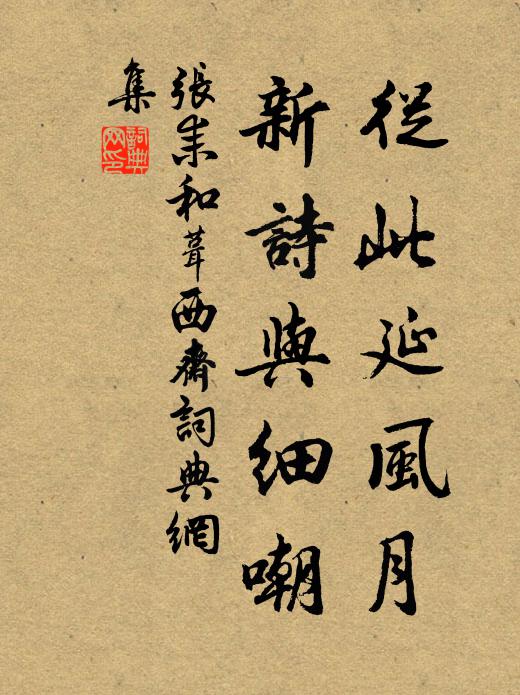 從此延風月
新詩與細嘲
張耒和葺西齋詞典網
集
詞典网印